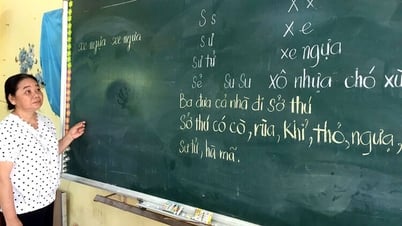 S s X x
xe ngựa xe ngựa
sư x e
Sư tử xe ngựa
Sẻ Su Su xô nhựa chó
Ba đưa cả nhà đi Sở thú
Sở thú có cò, rùa, khỉ, thỏ, ngựa,
Sư tử, hà mã.